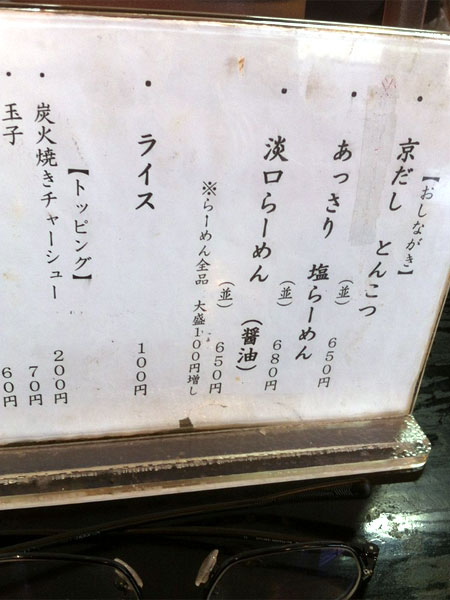 【おしながき】
・京だし とんこつ
（並） 650円
・あっさり 塩らーめん
（並） 680円
・淡口らーめん （醤油）
（並） 650円
※らーめん全品 大盛100円増し
・ライス 100円
【トッピング】
・炭火焼きチャーシュー 200円
・玉子 70円
60円